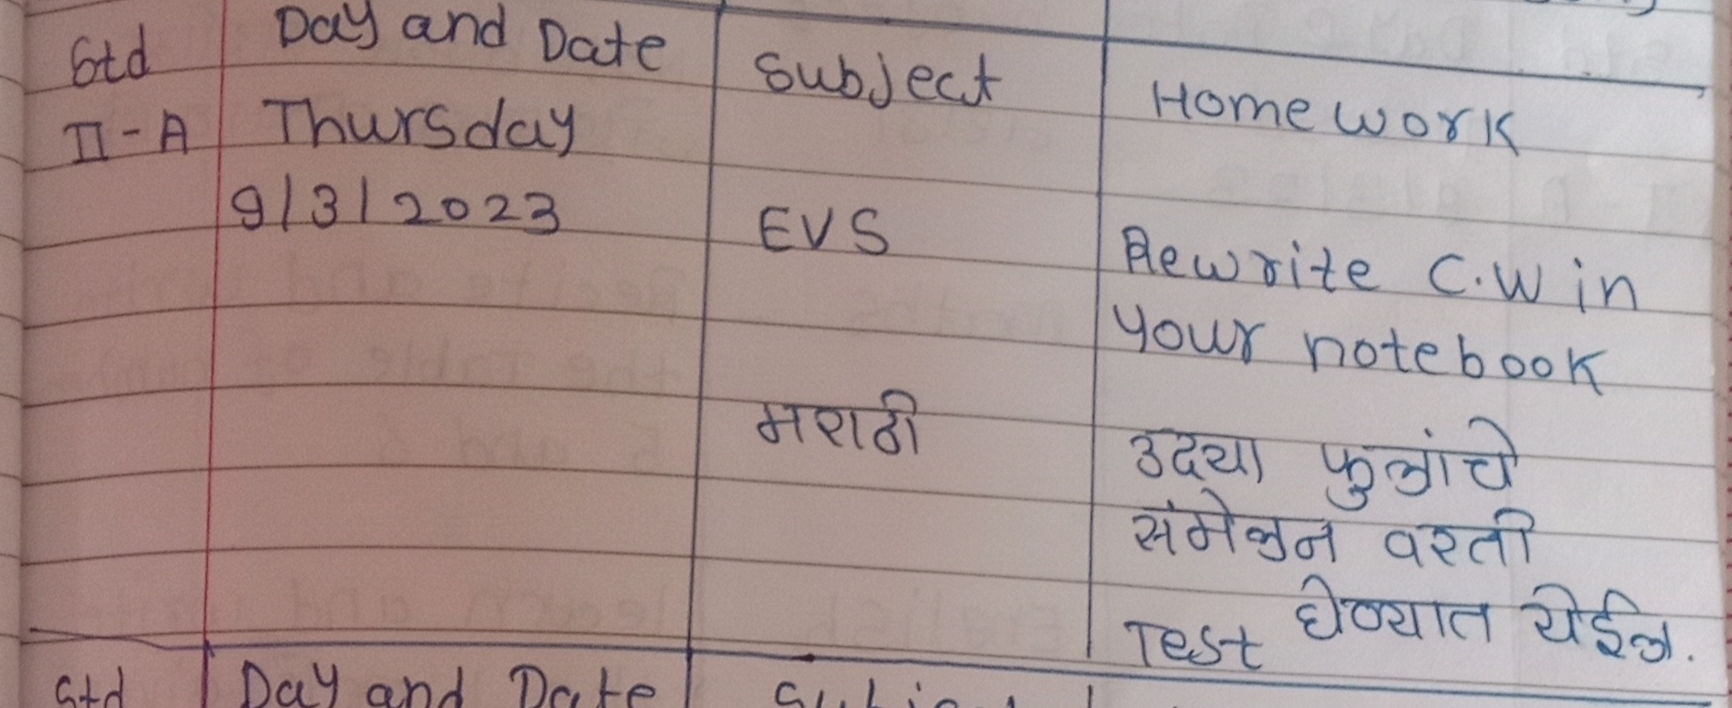 Std Day and Date Subject Homework
II-A Thursday
9/3/2023 EVS Rewrite C.W in
your notebook
मराठी उदया फुलांचे
संमेलन वरती
Test घेण्यात येईल.
Std Day and Date